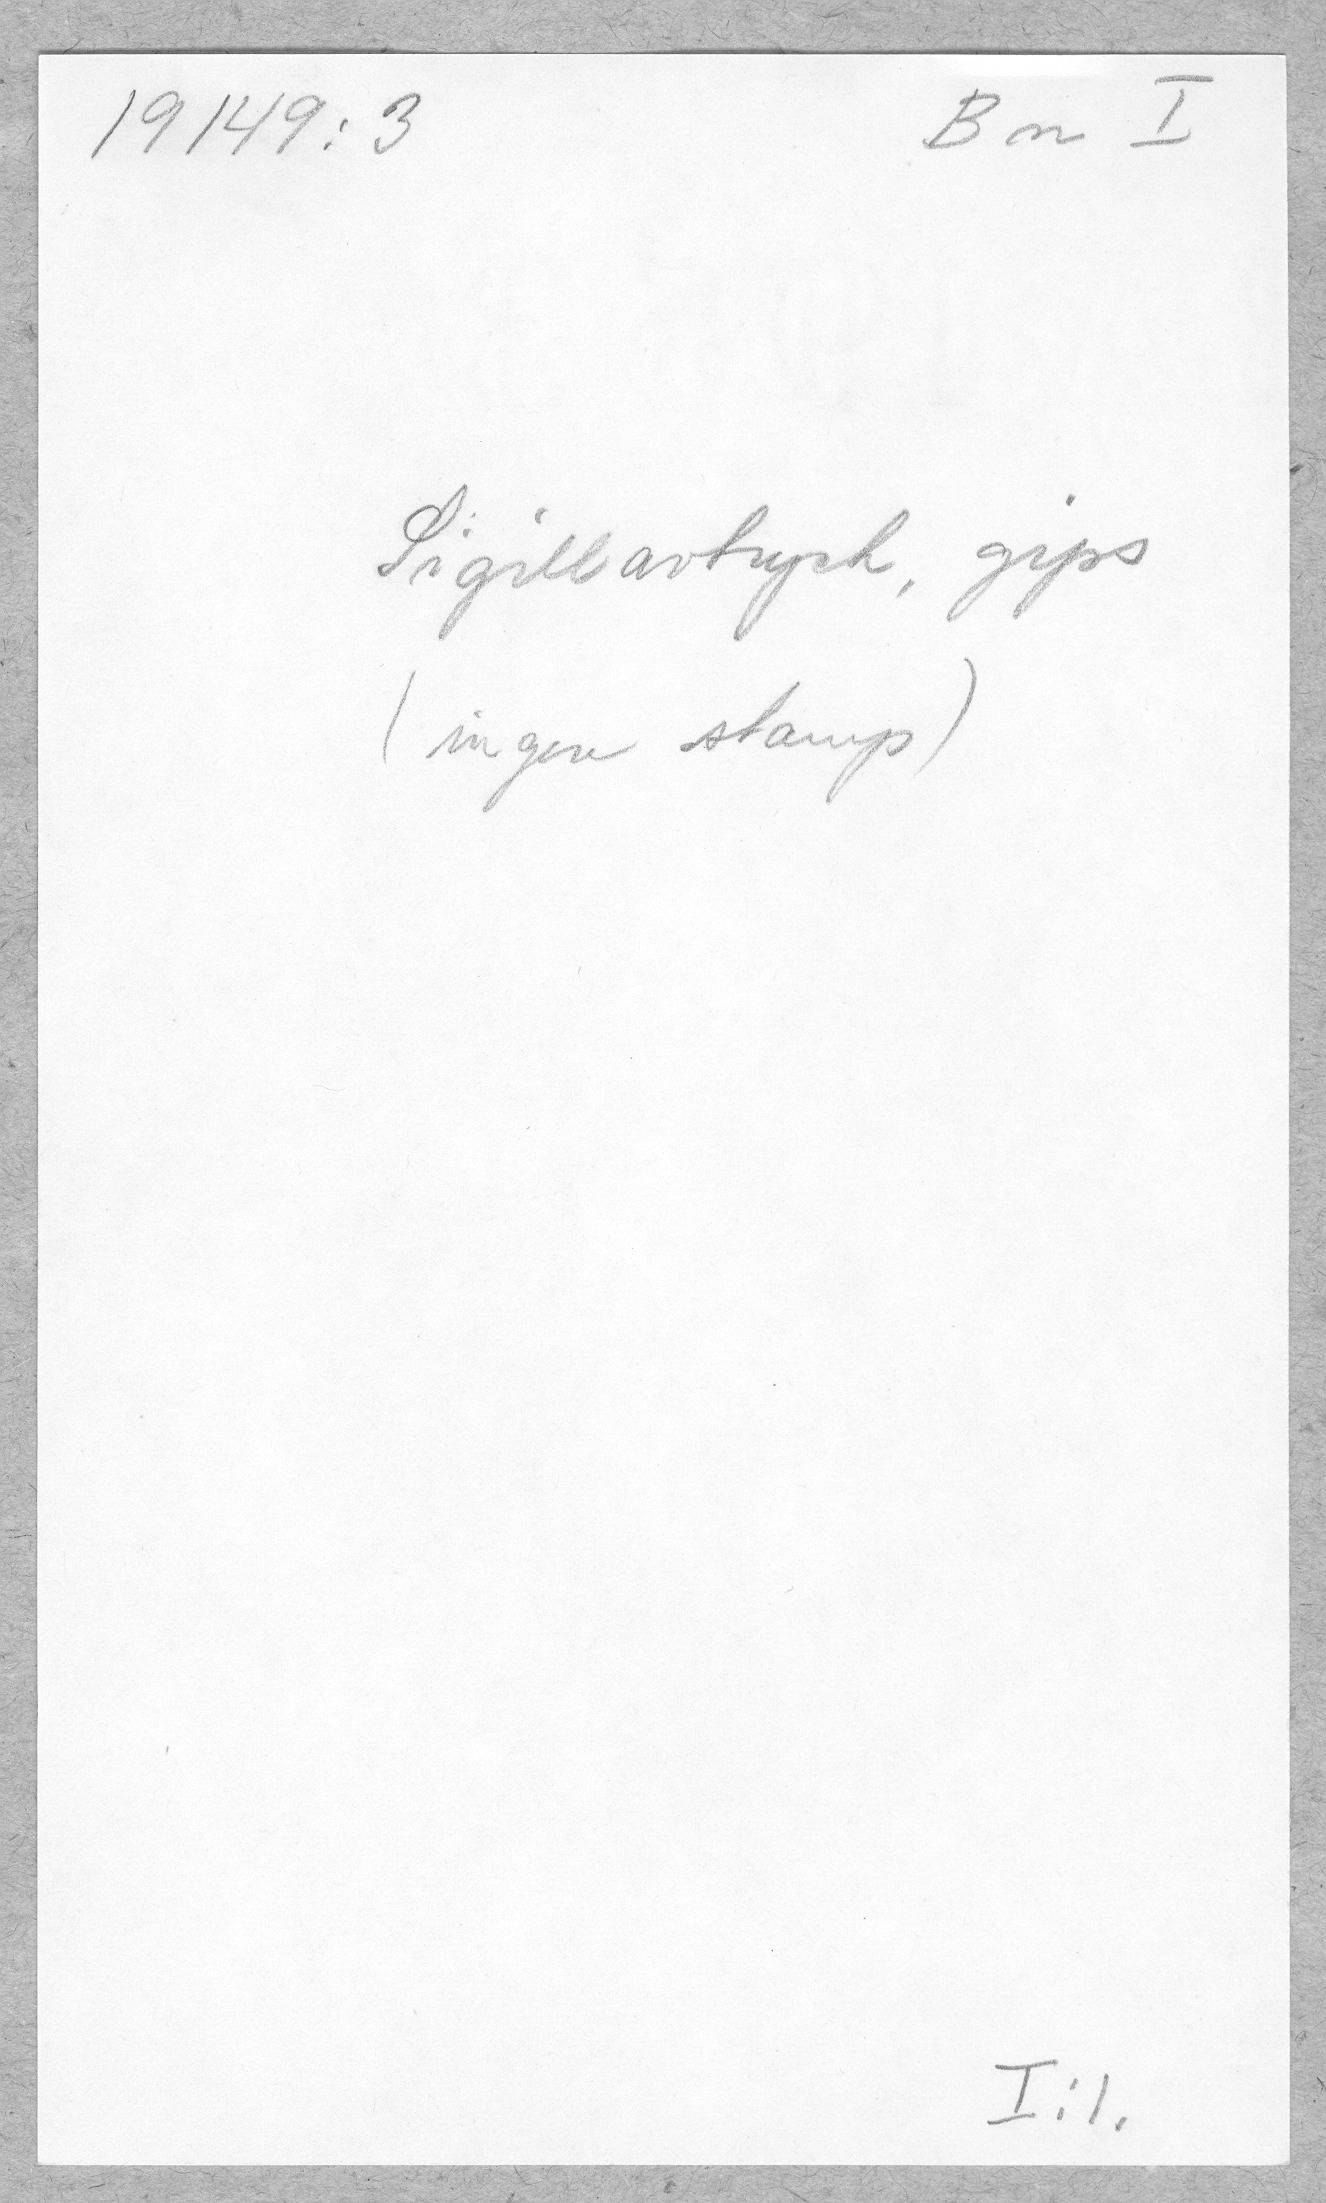 19149:3
Bm I
Sigillavtryck, gips
(ingen stamp)
I:1.